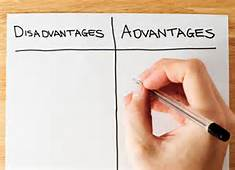 DISADVANTAGES ADVANTAGES